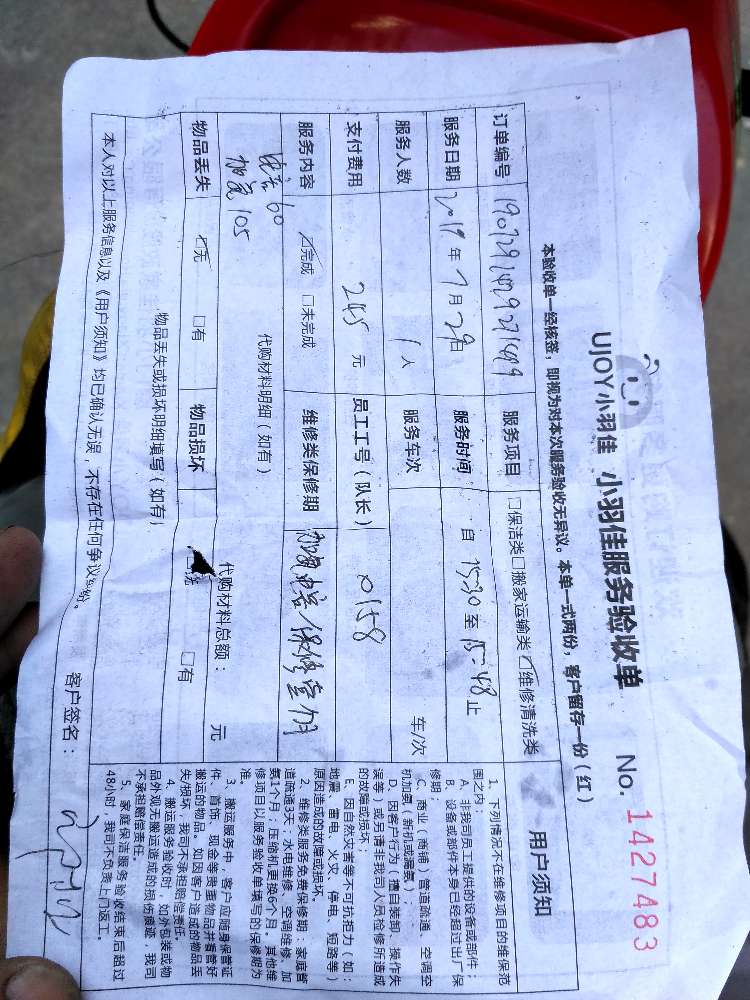 UJOY小羽佳 小羽佳服务验收单 No. 1427483
本验收单一经核签，即视为对本次服务验收无异议。本单一式两份，客户留存一份（红）
订单编号 服务项目 □保洁类□搬家运输类☑维修清洗类
服务日期 2019年7月29日 服务时间 自 15:30 至 15:48 止
服务人数 1人 服务车次 车/次
支付费用 245元 员工工号（队长） 0158
服务内容 ☑完成 □未完成 维修类保修期
代购材料明细（如有） 代购材料总额： 元
60
105
物品丢失 ☑无 □有 物品损坏 □有
物品丢失或损坏明细填写（如有）
本人对以上服务信息以及《用户须知》均已确认无误，不存在任何争议纠纷。
客户签名：
用户须知
1、下列情况不在维修项目的维保范
围之内：
A、非我司员工提供的设备或部件；
B、设备或部件本身已经超过出厂保
修期；
C、商业（商铺）管道疏通、空调空
机加氟（新机或漏氟）；
D、因客户行为（擅自装卸、操作失
误等）或另请非我司人员检修所造成
的故障或损坏；
E、因自然灾害等不可抗拒力（如：
地震、雷电、火灾、停电、短路等）
原因造成的故障或损坏。
2、维修类服务免费保修期：家庭管
道疏通3天；水电维修、空调维修、加
氨1个月；压缩机更换6个月。其他维
修项目以服务验收单填写的保修期为
准。
3、搬运服务中，客户应随身保管证
件、首饰、现金等贵重物品并看管好
搬运的物品，如因客户造成的物品丢
失/损坏，我司不承担赔偿责任。
4、搬运服务验收时，如外包装或物
品外观无搬运造成的损伤痕迹，我司
不承担赔偿责任。
5、家庭保洁服务验收结束后超过
48小时，我司不负责上门返工。